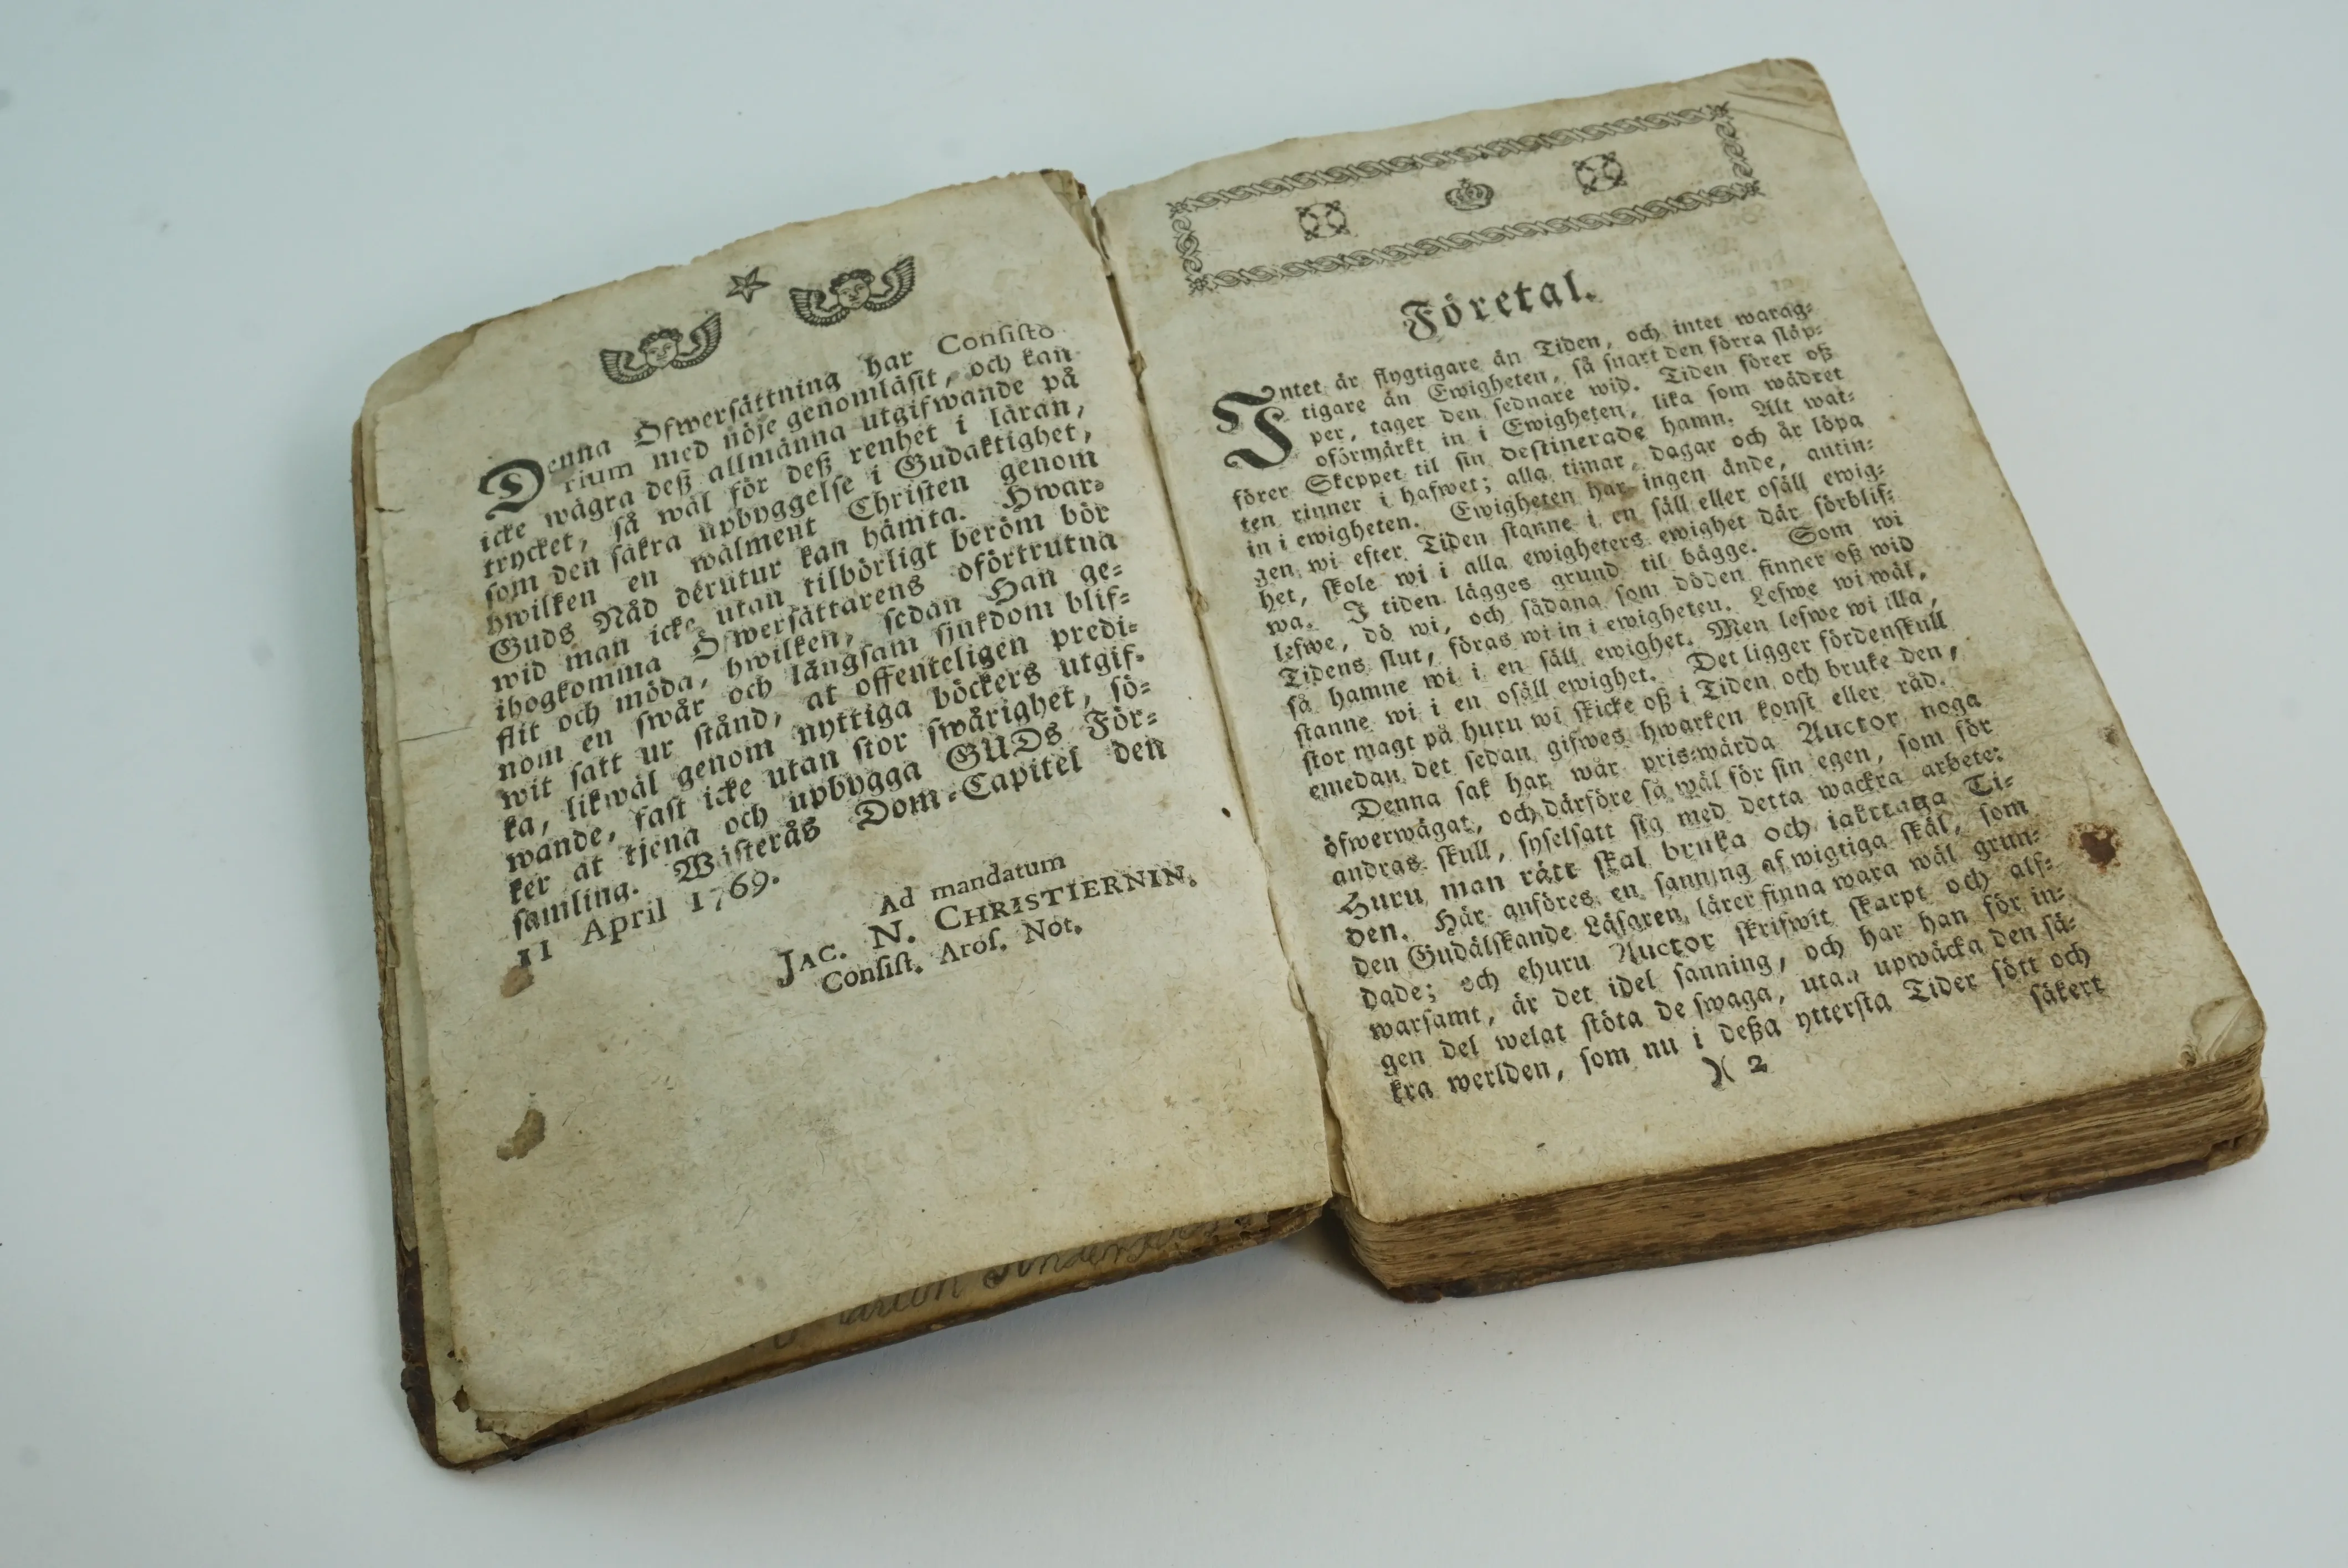 Denna Öfwersättning har Consisto
rium med nöje genomläsit, och kan
icke wägra deß allmänna utgifwande på
trycket, så wäl för deß renhet i läran,
som den säkra upbyggelse i Gudaktighet,
hwilken en wälment Christen genom
Guds Nåd derutur kan hämta. Hwar-
wid man icke utan tilbörligt beröm bör
ihogkomma Öfwersättarens oförtrutna
flit och möda, hwilken, sedan Han ge-
nom en swår och långsam sjukdom blif-
wit satt ur stånd, at offenteligen predi-
ka, likwäl genom nyttiga böckers utgif-
wande, fast icke utan stor swårighet, sö-
ker at tjena och upbygga GUDs För-
samling. Wästerås Dom-Capitel den
11 April 1769.
Ad mandatum
JAC. N. CHRISTIERNIN.
Consist. Aros. Not.
Anders
Företal.
Intet är flygtigare än Tiden, och intet warag-
tigare än Ewigheten, så snart den förra släp-
per, tager den sednare wid. Tiden förer oß
oförmärkt in i Ewigheten, lika som wädret
förer Skeppet til sin destinerade hamn. Alt wat-
ten rinner i hafwet; alla timar, dagar och år löpa
in i ewigheten. Ewigheten har ingen ände, antin-
gen wi efter Tiden stanne i en säll eller osäll ewig-
het, skole wi i alla ewigheters ewighet där förblif-
wa. I tiden lägges grund til bägge. Som wi
lefwe, dö wi, och sådana som döden finner oß wid
Tidens slut, föras wi in i ewigheten. Lefwe wi wäl,
så hamne wi i en säll ewighet. Men lefwe wi illa,
stanne wi i en osäll ewighet. Det ligger fördenskull
stor magt på huru wi skicke oß i Tiden och bruke den,
emedan det sedan gifwes hwarken konst eller råd.
Denna sak har wår pris-wärda Auctor noga
öfwerwägat, och därföre så wäl för sin egen, som för
andras skull, syselsatt sig med detta wackra arbete:
Huru man rätt skal bruka och iakttaga Ti-
den. Här anföres en sanning af wigtiga skäl, som
den Gudälskande Läsaren lärer finna wara wäl grun-
dade; och ehuru Auctor skrifwit skarpt och alf-
warsamt, är det idel sanning, och har han för in-
gen del welat stöta de swaga, utan upwäcka den sä-
kra werlden, som nu i deßa yttersta Tider sött och
säkert
)( 2